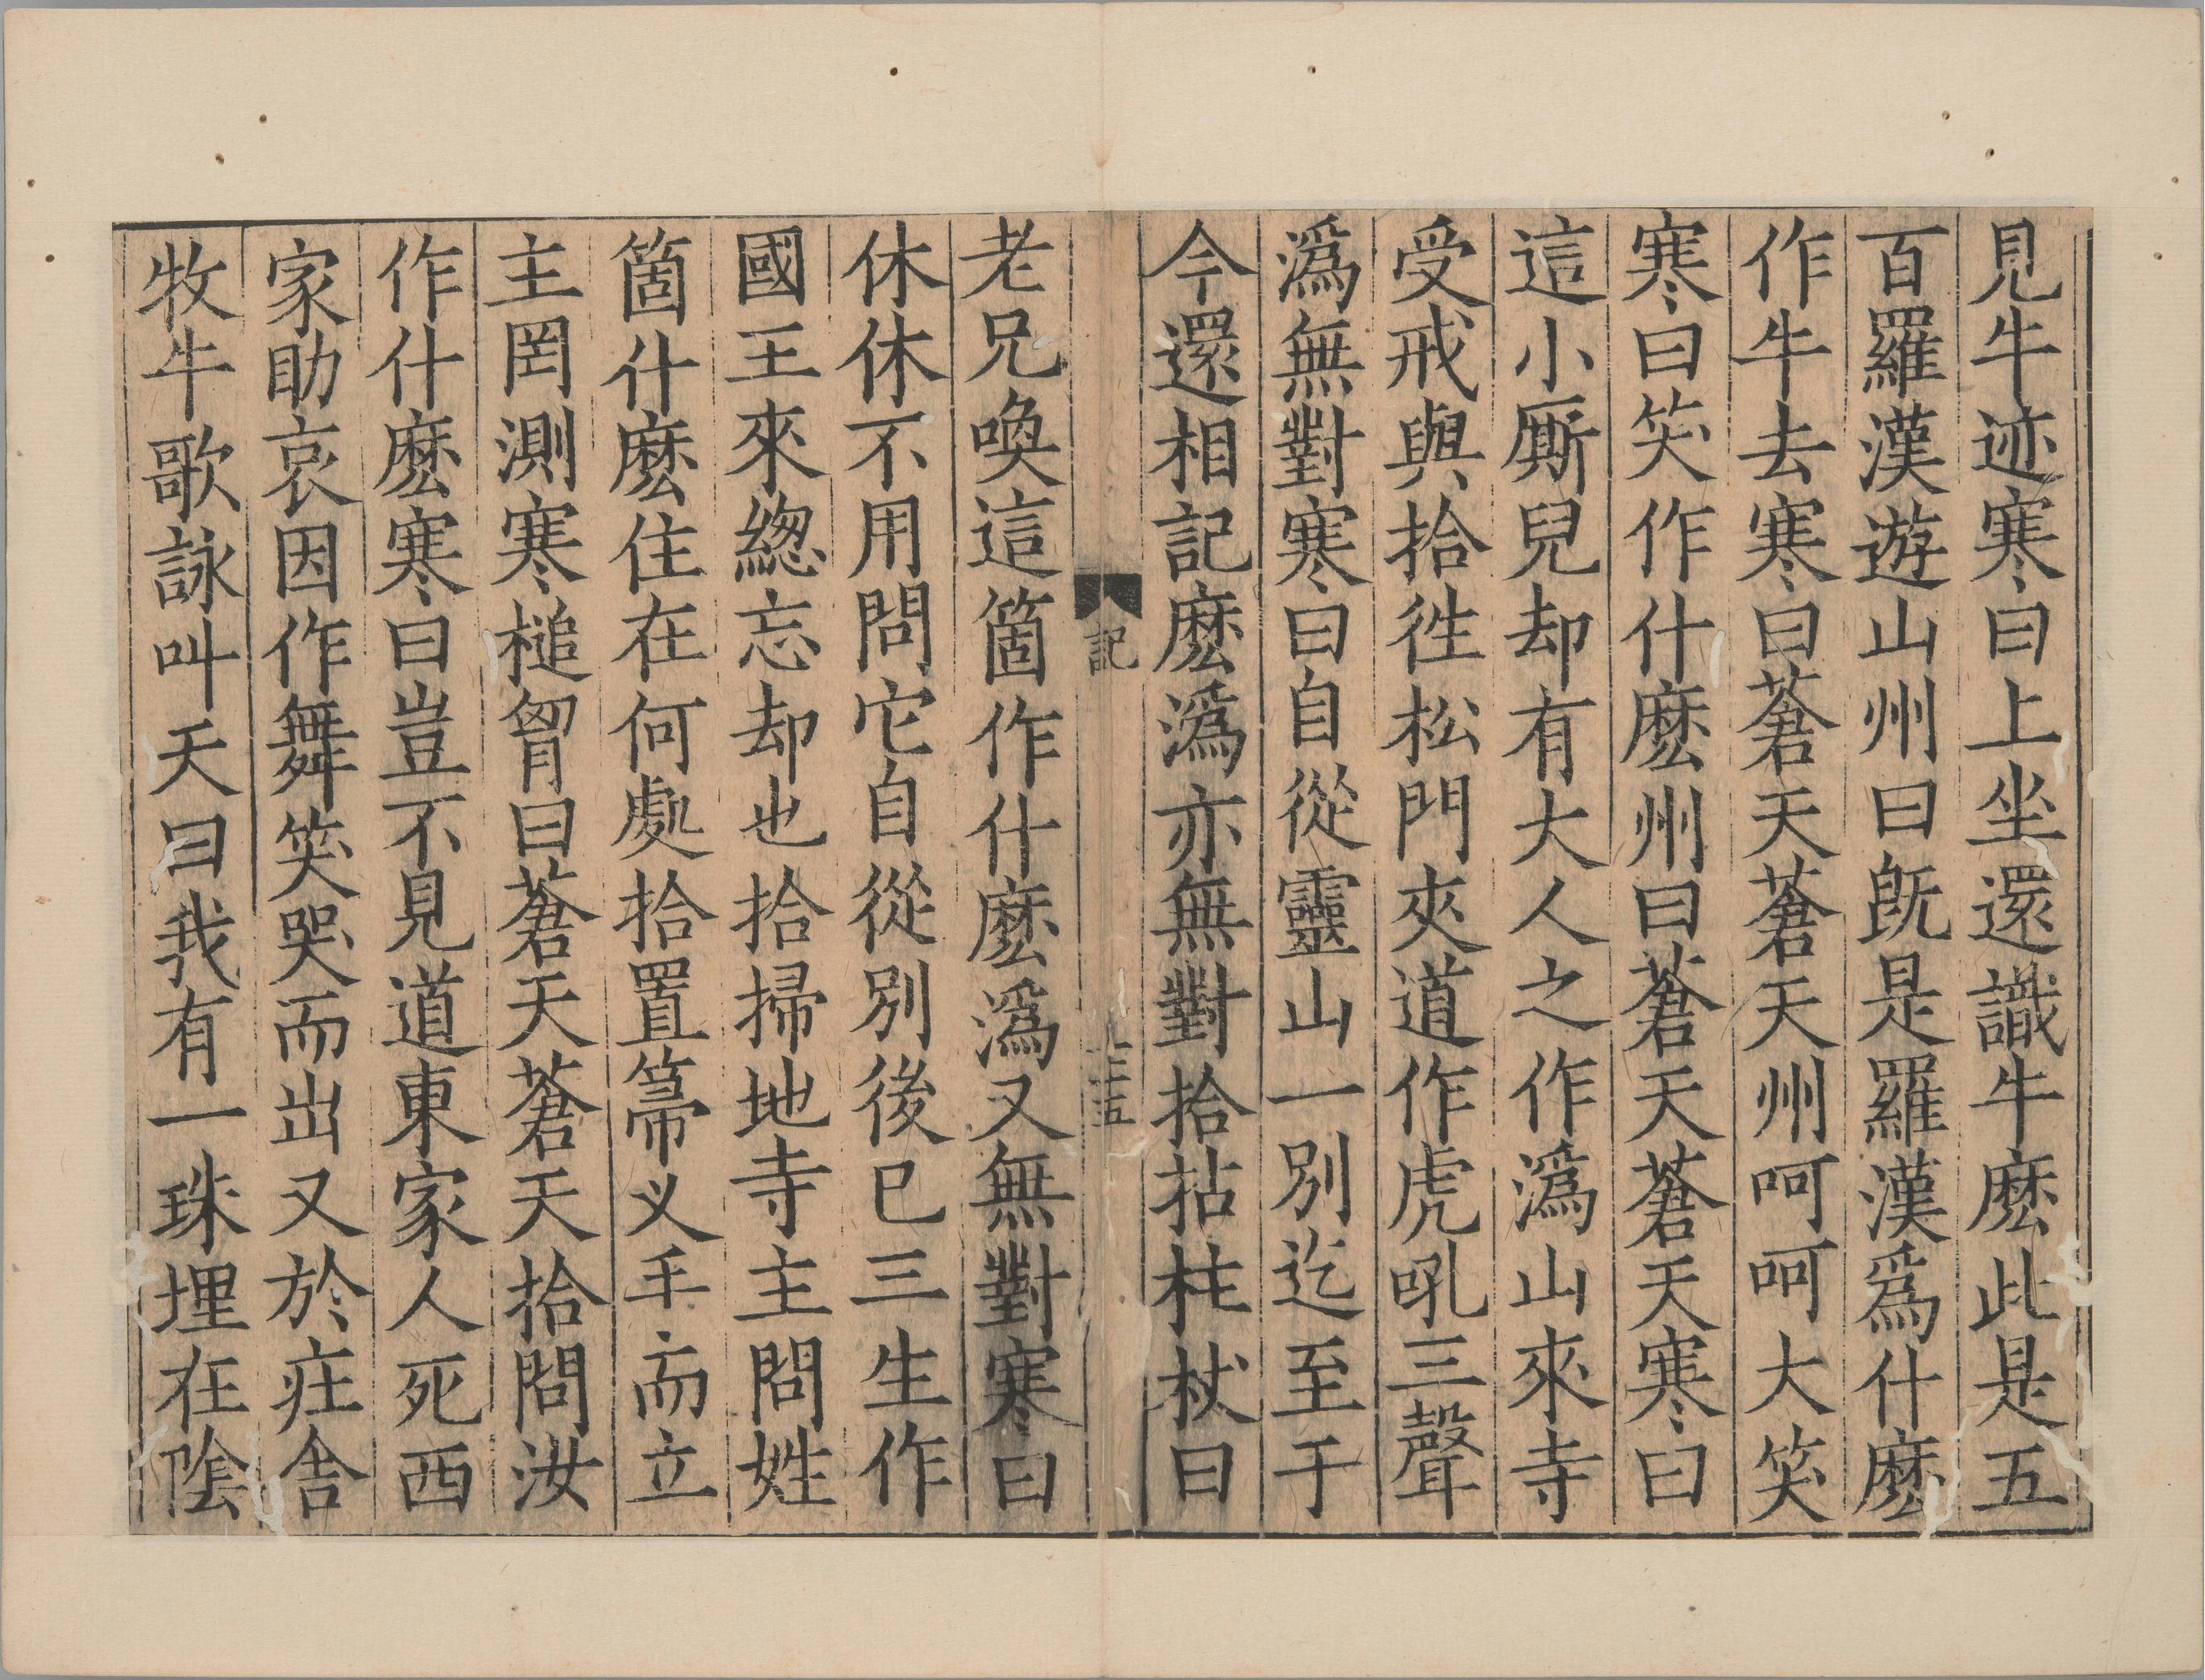 見牛迹寒曰上坐還識牛麽此是五
百羅漢遊山州曰旣是羅漢爲什麽
作牛去寒曰蒼天蒼天州呵呵大笑
寒曰笑作什麽州曰蒼天蒼天寒曰
這小厮兒却有大人之作潙山來寺
受戒與拾徃松門夾道作虎吼三聲
潙無對寒曰自從靈山一別迄至于
今還相記麽潙亦無對拾拈柱杖曰
記
老兄喚這箇作什麽潙又無對寒曰
休休不用問它自從別後已三生作
國王來緫忘却也拾掃地寺主問姓
箇什麽住在何處拾置箒义手而立
主罔測寒槌胷曰蒼天蒼天拾問汝
作什麽寒曰豈不見道東家人死西
家助哀因作舞笑哭而出又於庄舍
牧牛歌詠叫天曰我有一珠埋在陰